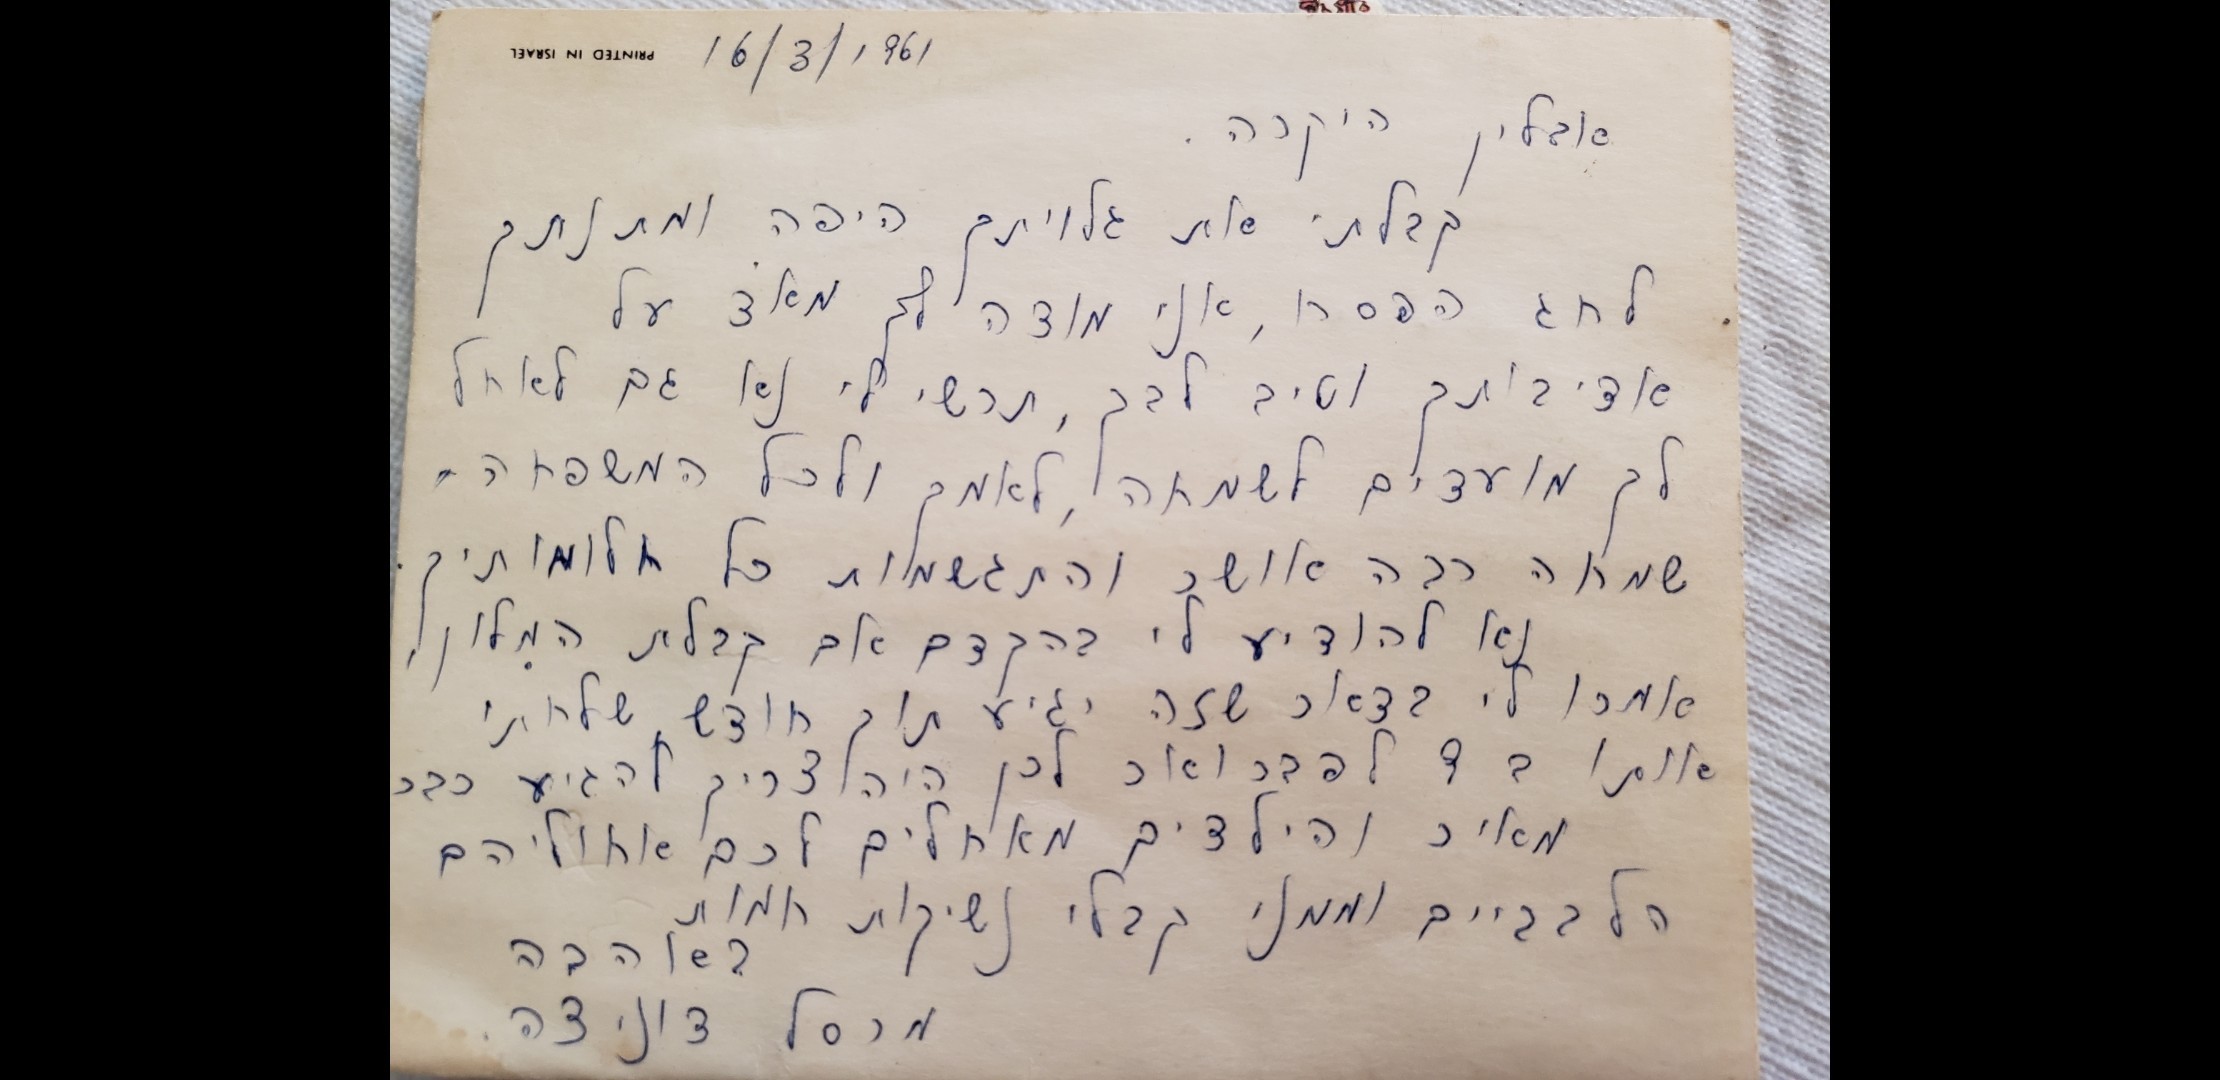 PRINTED IN ISRAEL
16/3/1961
אובלין היקרה.
קבלתי את גלויתך היפה ומתנתך
לחג הפסח, אני מודה לך מאד על
אדיבותך וטיב לבך, תרשי לי נא גם לאחל
לך מועדים לשמחה, לאמך ולכל המשפחה -
שמחה רבה אושר והתגשמות כל חלומותיך.
נא להודיע לי בהקדם אם קבלת המלון,
אמרו לי בדאר שזה יגיע תוך חודש, שלחתי
אותו ב 9 לפברואר לכן היה צריך להגיע כבר
מאיר והילדים מאחלים לכם אחוליהם
הלבביים וממני קבלי נשיקות חמות
באהבה
מרסל דונידה.